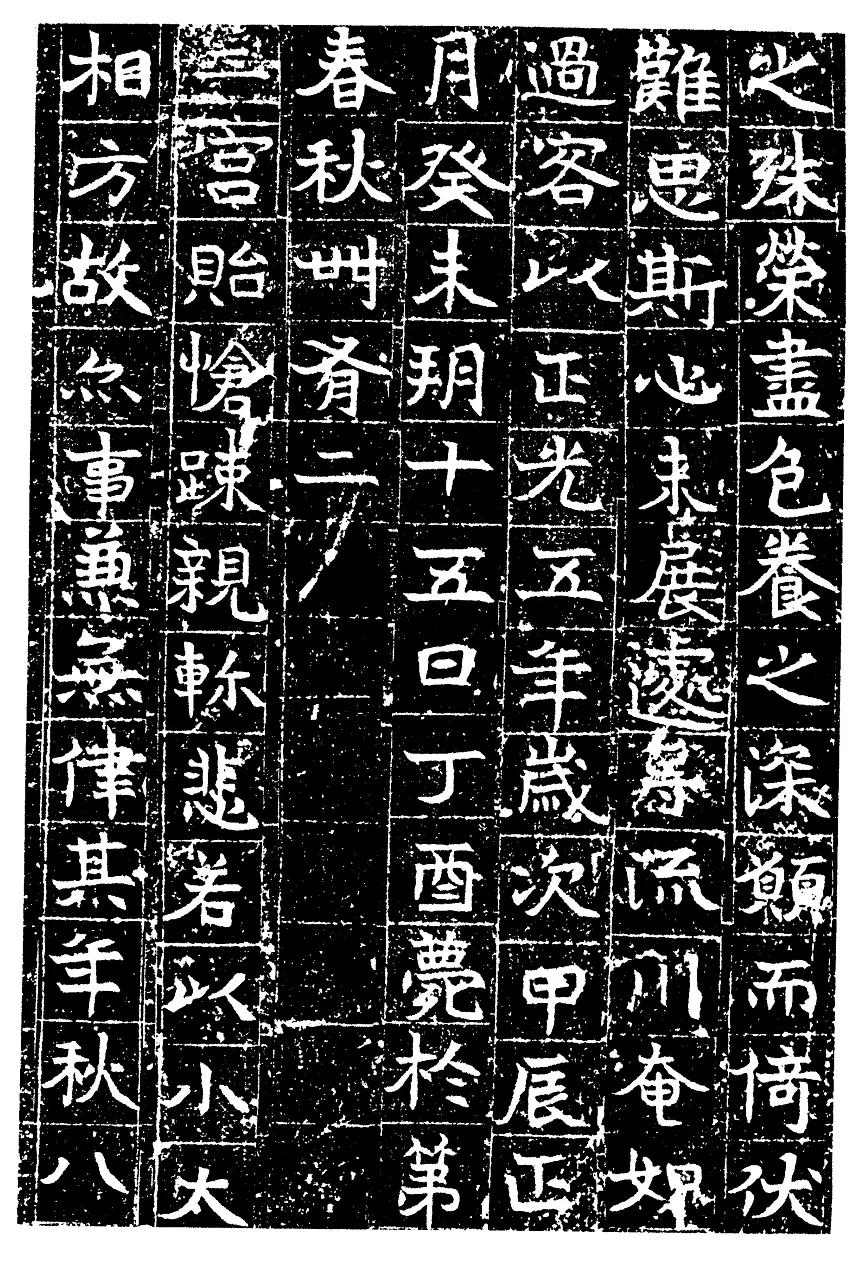 之殊榮盡色養之深顛而倚伏
難思斯心未展遽尋流川奄如
過客以正光五年歲次甲辰正
月癸未朔十五日丁酉薨於第
春秋卌有二
二宮貽愴踈親軫悲若以小太
相方故亦事兼無律其年秋八